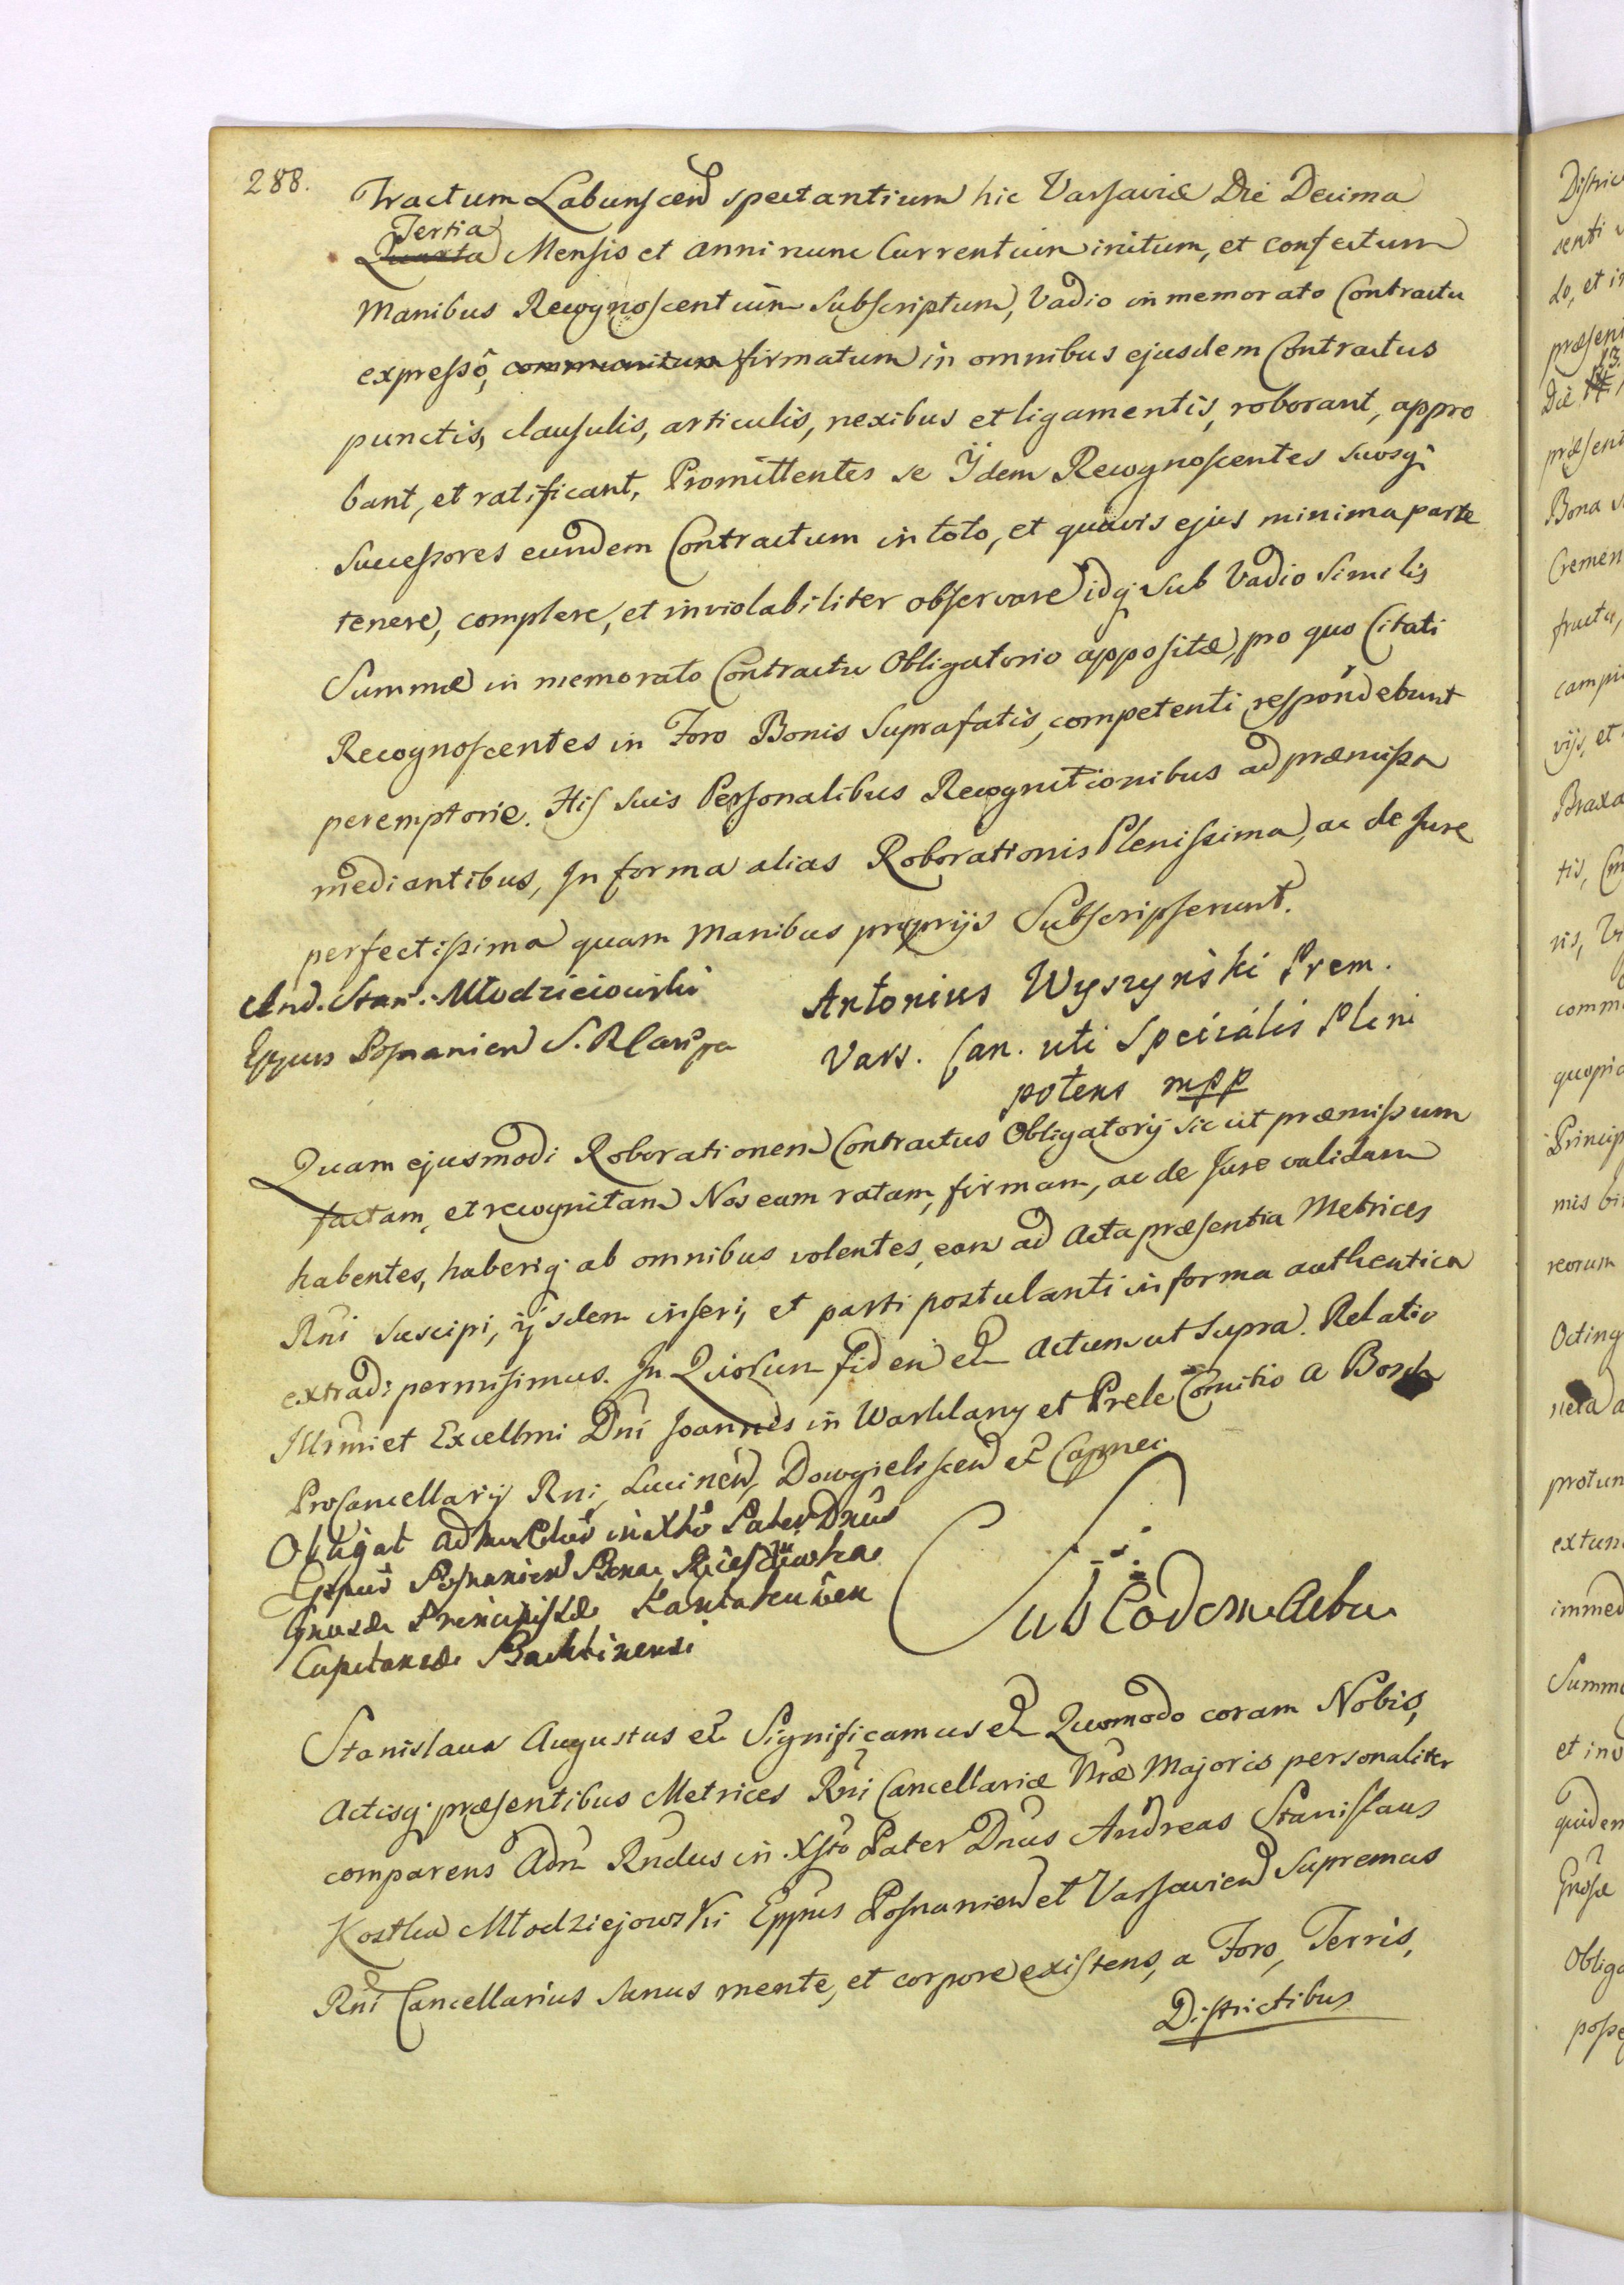 288.
Tractum Labunscen spectantium hic Varsaviæ Die Decima
Tertia
Quarta Mensis et anni nunc Currentium initum, et confectum
Manibus Recognoscentium Subscriptum, Vadio in memorato Contractu
expresso, communitum firmatum in omnibus ejusdem Contractus
punctis, clausulis, articulis, nexibus et ligamentis, roborant, appro
bant, et ratificant, Promittentes se Ijdem Recognoscentes suosq;
Successores eundem Contractum in toto, et quavis ejus minima parte
tenere, complere, et inviolabiliter observare idq; sub Vadio Similis
Summæ in memorato Contractu Obligatorio appositæ, pro quo Citati
Recognoscentes in Foro Bonis Suprafatis, competenti respondebunt
peremptorie. His suis Personalibus Recognitionibus ad præmissa
mediantibus, In forma alias Roborationis Plenissima, ac de Jure
perfectissima quam Manibus proprijs Subscripserunt.
And. Stan. Młodzieiowski
Eppus Posnanien S. R
Antonius Wyszyński Prem.
Vars. Can. uti Specialis Pleni
potens mpp
Quam ejusmodi Roborationem Contractus Obligatorij sic ut præmissum
factam, et recognitam Nos eam ratam, firmam, ac de Jure validam
habentes, haberiq; ab omnibus volentes, eam ad Acta præsentia Metrices
Rni suscipi, ijsdem inseri, et parti postulanti in forma authentica
extradi permisimus. In Quorum fidem et Actum ut supra. Relatio
Illrmi et Excellmi Dni Joannes in Warklany et Prele Comitis a Borch
ProCancellarij Rni, Lucinen, Dowgielscen et Capnei
Obligat in Xto Pater Dnus
Eppus Posnanien Bona
Gnosæ
Capitaneæ
Sub Eodem Actu
Stanislaus Augustus et Significamus et Quomodo coram Nobis,
Actisq; præsentibus Metrices Rni Cancellariæ Nræ Majoris personaliter
comparens Adm Rndus in Xsto Pater Dnus Andreas Stanislaus
Kostka Młodziejowski Eppus Posnanien et Varsavien Supremus
Rni Cancellarius Sanus mente, et corpore existens, a Foro, Terris,
Districtibus